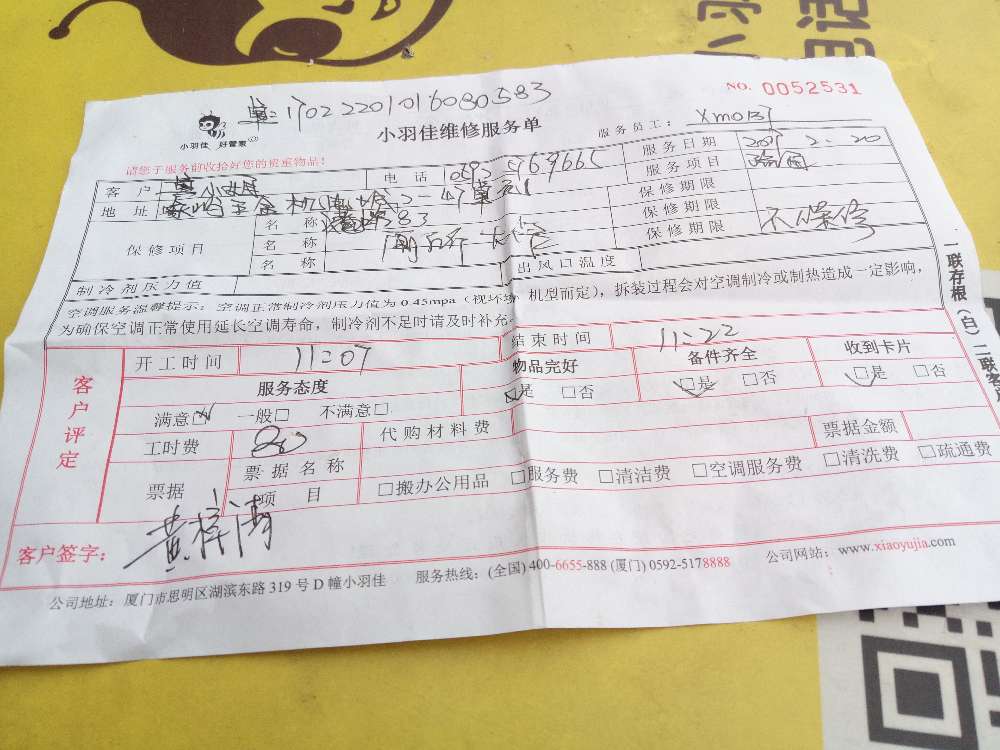 NO. 0052531
单:17022201016080583
小羽佳 好管家
小羽佳维修服务单
服务员工:
请您于服务前收拾好您的贵重物品!
客户 小姐
电话
服务日期
地址
服务项目
保修项目
名称
保修期限
名称
保修期限
名称
保修期限
不保修
制冷剂压力值
出风口温度
空调服务温馨提示:空调正常制冷剂压力值为 0.45mpa(视环境、机型而定),拆装过程会对空调制冷或制热造成一定影响,
为确保空调正常使用延长空调寿命,制冷剂不足时请及时补充
一联存根(白)二联客户
客户评定
开工时间 11:07
结束时间 11:22
服务态度
物品完好
备件齐全
收到卡片
满意☑ 一般□ 不满意□
☑是 □否
☑是 □否
☑是 □否
工时费
代购材料费
票据金额
票据
票据名称
项目
□搬办公用品 □服务费 □清洁费 □空调服务费 □清洗费 □疏通费
客户签字:
黄梓涛
公司地址:厦门市思明区湖滨东路 319 号 D 幢小羽佳 服务热线:(全国) 400-6655-888 (厦门) 0592-5178888 公司网站:www.xiaoyujia.com